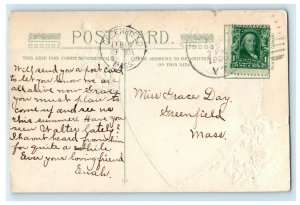 POSTCARD.
THIS SIDE FOR CORRESPONDENCE.
OTHER SIDE TO BE WRITTEN
IN THIS SIDE.
Well send you a post card
to let you know we are
all alive now Grace
you must plan to
come up and see us
this summer Have you
seen Et alter lately?
I havnt heard from him
for quite a while
Ever your loving friend
Miss Grace Day,
Greenfield
Mass.